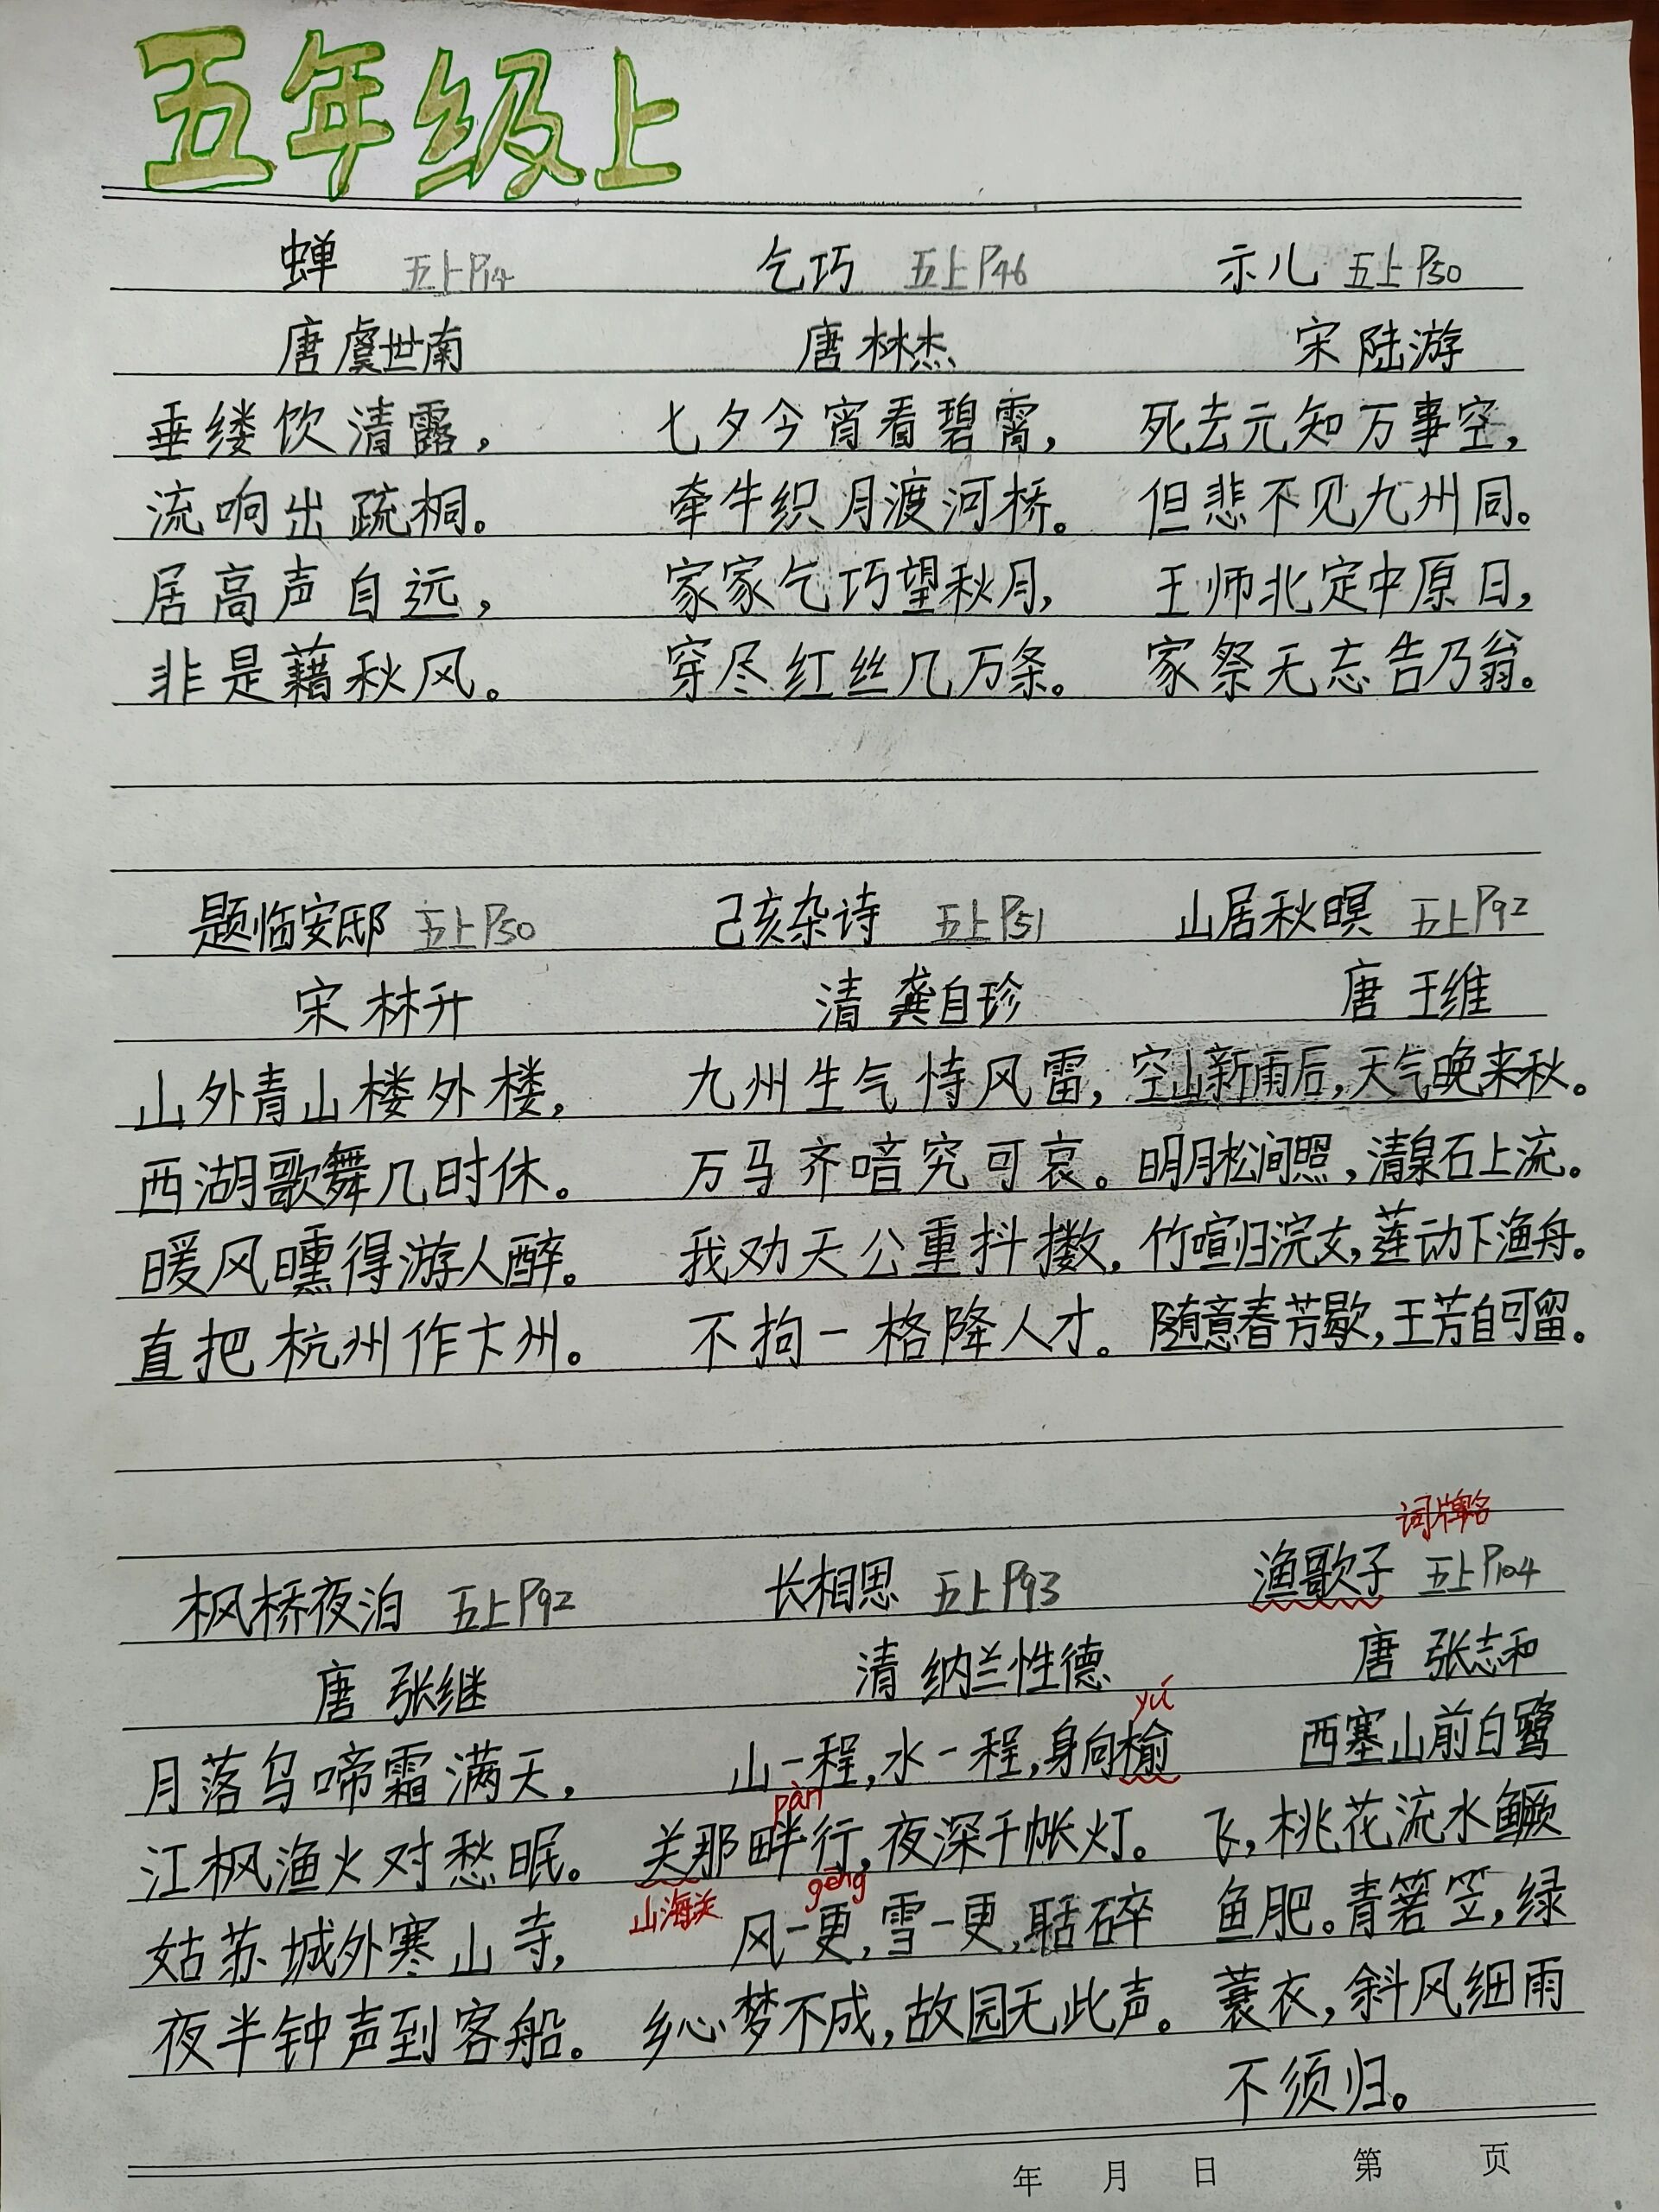 五年级上
蝉 五上P14
唐 虞世南
垂缕饮清露，
流响出疏桐。
居高声自远，
非是藉秋风。
乞巧 五上P46
唐 林杰
七夕今宵看碧霄，
牵牛织月渡河桥。
家家乞巧望秋月，
穿尽红丝几万条。
示儿 五上P50
宋 陆游
死去元知万事空，
但悲不见九州同。
王师北定中原日，
家祭无志告乃翁。
题临安邸 五上P50
宋 林升
山外青山楼外楼，
西湖歌舞几时休。
暖风曛得游人醉。
直把杭州作卞州。
己亥杂诗 五上P51
清 龚自珍
九州生气恃风雷，
万马齐喑究可哀。
我劝天公重抖擞，
不拘一格降人才。
山居秋暝 五上P92
唐 王维
空山新雨后，天气晚来秋。
明月松间照，清泉石上流。
竹喧归浣女，莲动下渔舟。
随意春芳歇，王芳自可留。
枫桥夜泊 五上P92
唐 张继
月落乌啼霜满天，
江枫渔火对愁眠。
姑苏城外寒山寺，
夜半钟声到客船。
长相思 五上P93
清 纳兰性德
yú
山一程，水一程，身向榆
pàn
关那畔行，夜深千帐灯。
山海关
gēng
风一更，雪一更，聒碎
乡心梦不成，故园无此声。
词牌名
渔歌子 五上P104
唐 张志和
西塞山前白鹭
飞，桃花流水鳜
鱼肥。青箬笠，绿
蓑衣，斜风细雨
不须归。
年 月 日 第 页